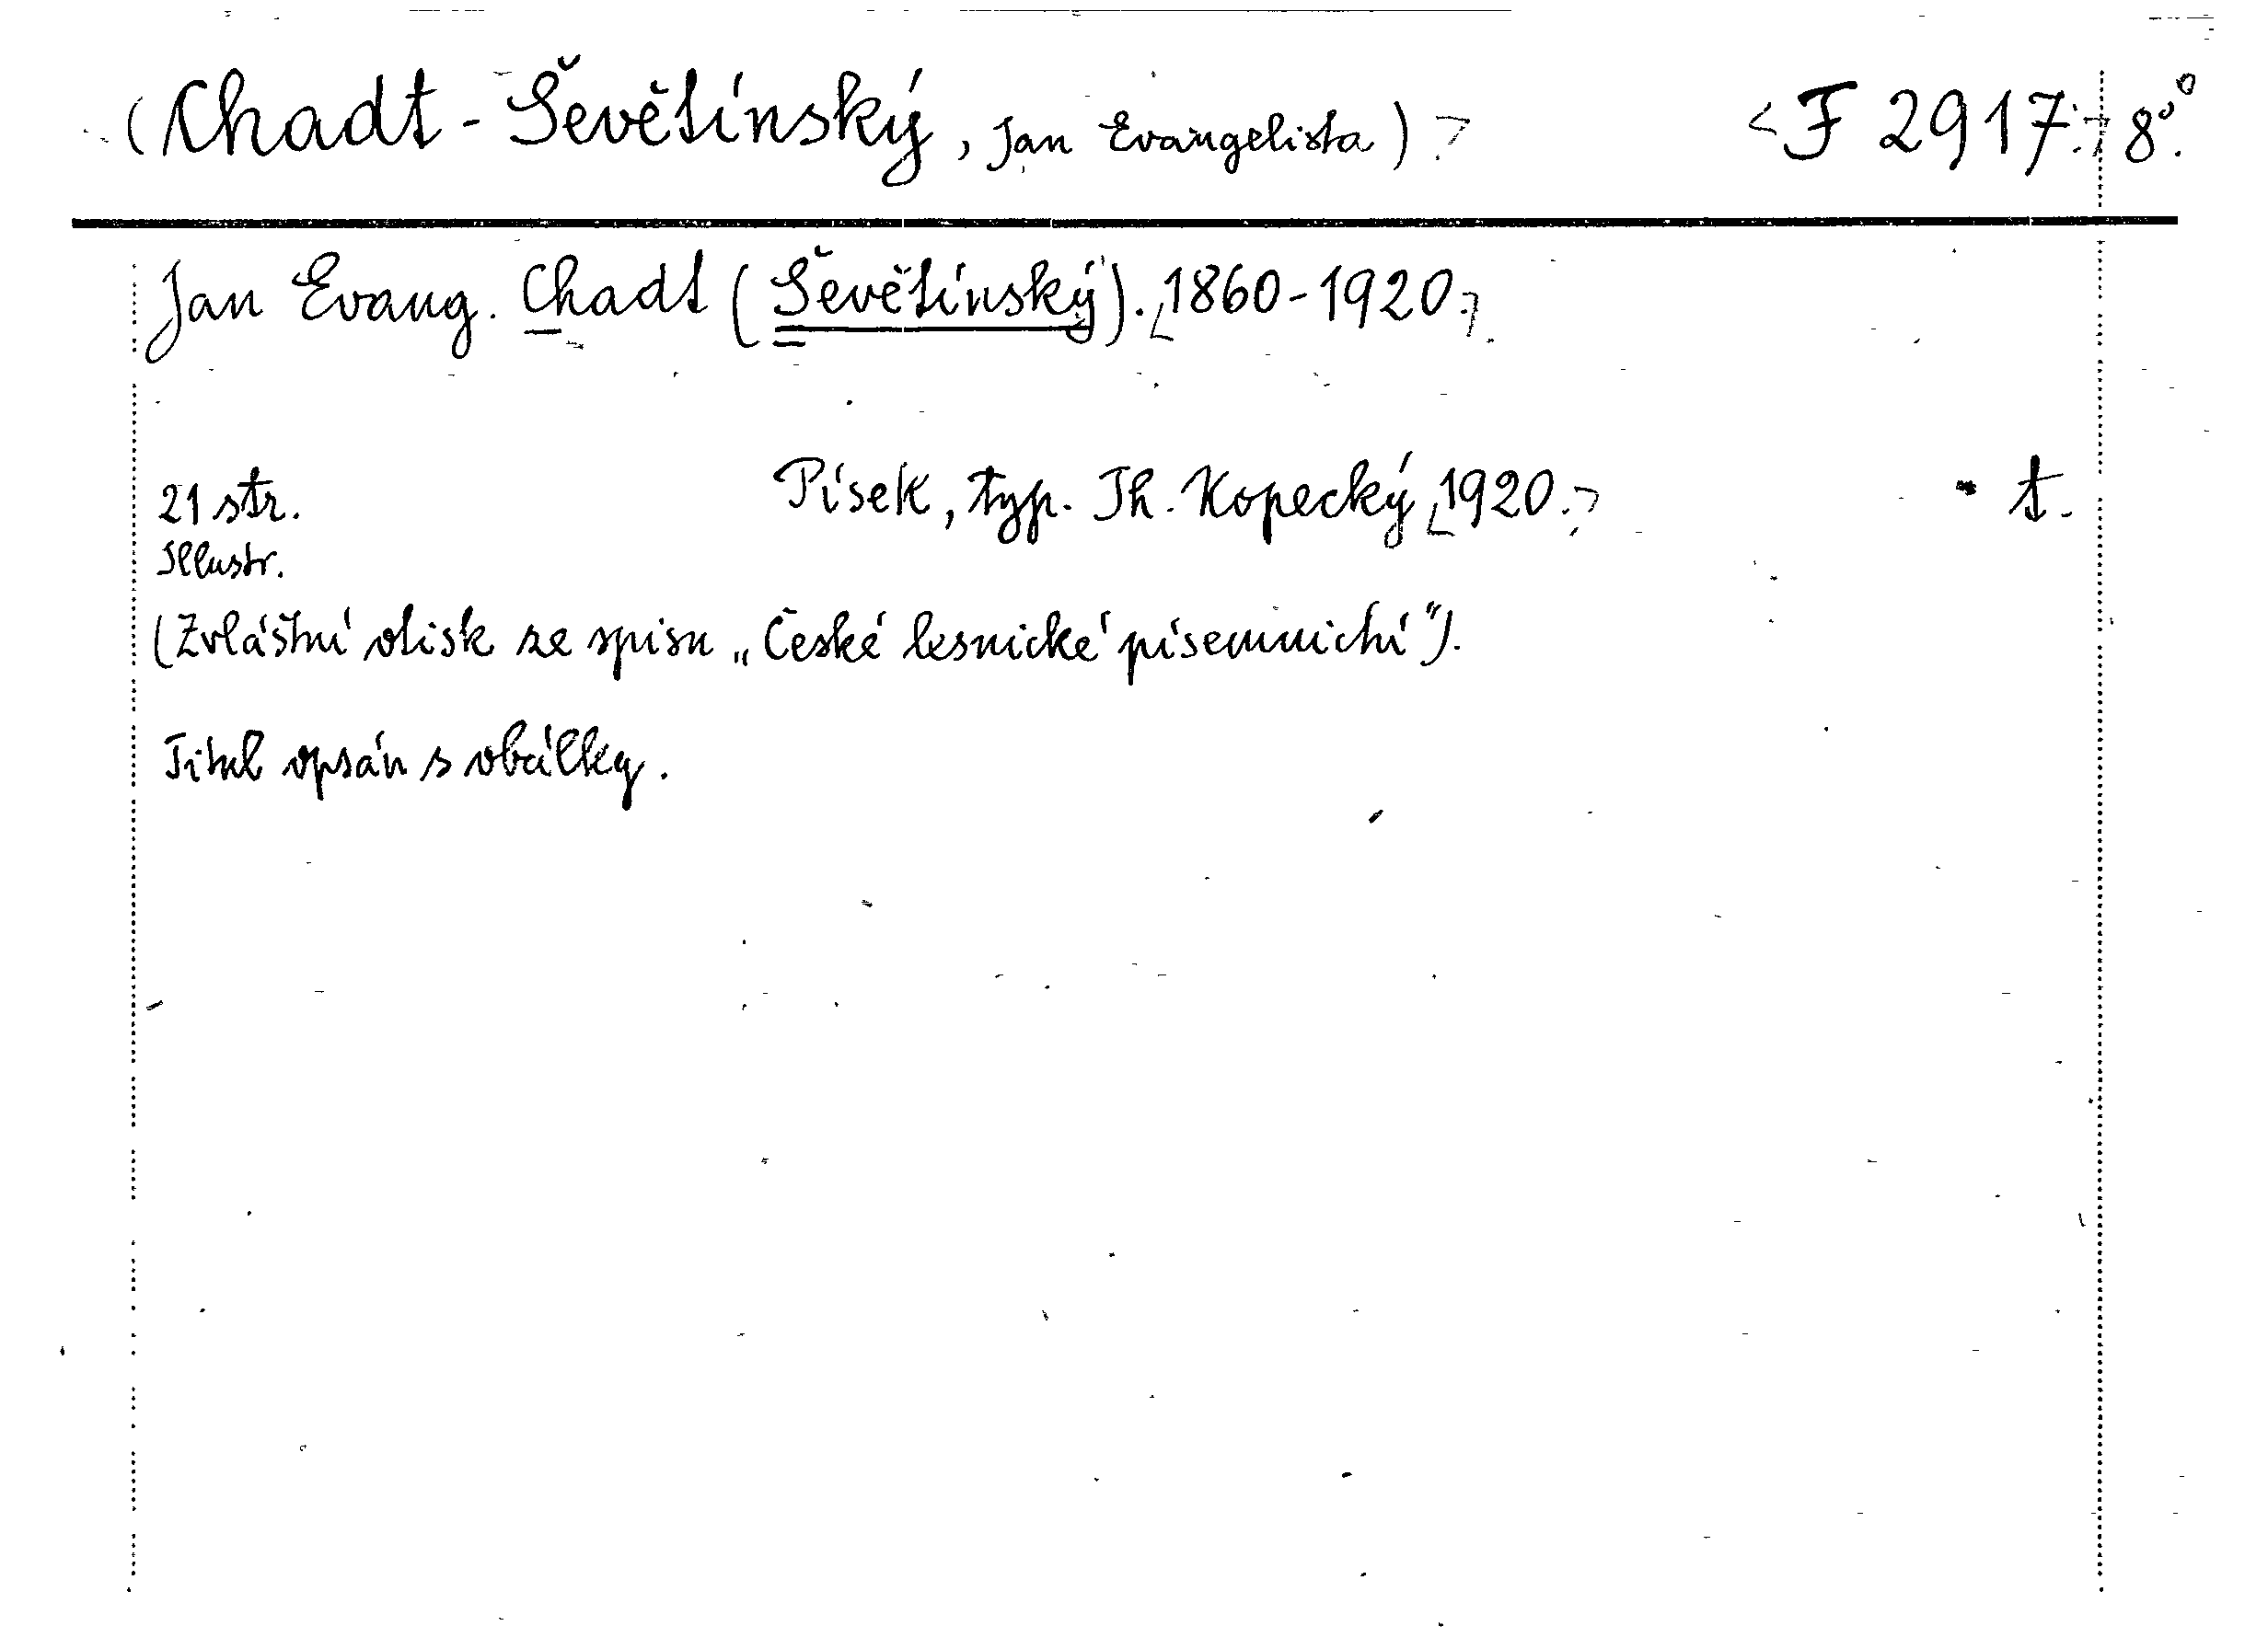 (Chadt-Ševětínský, Jan Evangelista) > <F 2917.> 8°.
Jan Evang. Chadt (Ševětínský). [1860-1920.]
21 str. Písek, typ. Th. Kopecký [1920.] t.
Illustr.
(Zvláštní otisk ze spisu „České lesnické písemnictví").
Titul opsán s obálky.